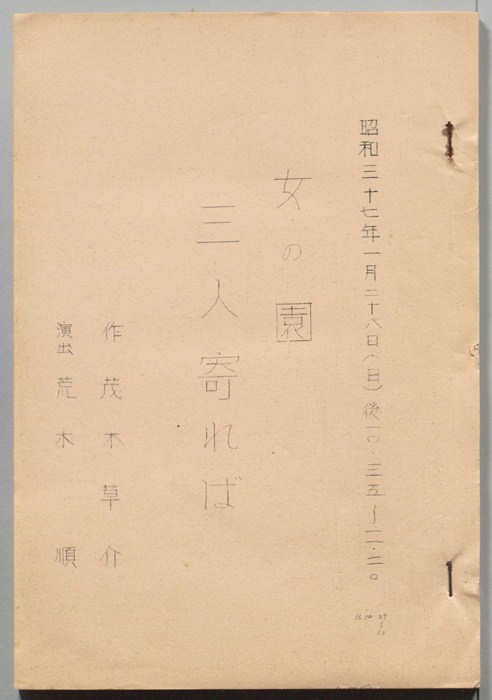 昭和三十七年一月二十八日(日)後一〇・三五〜一一・二〇
女の園
三人寄れば
作 茂木草介
演出 荒木 順